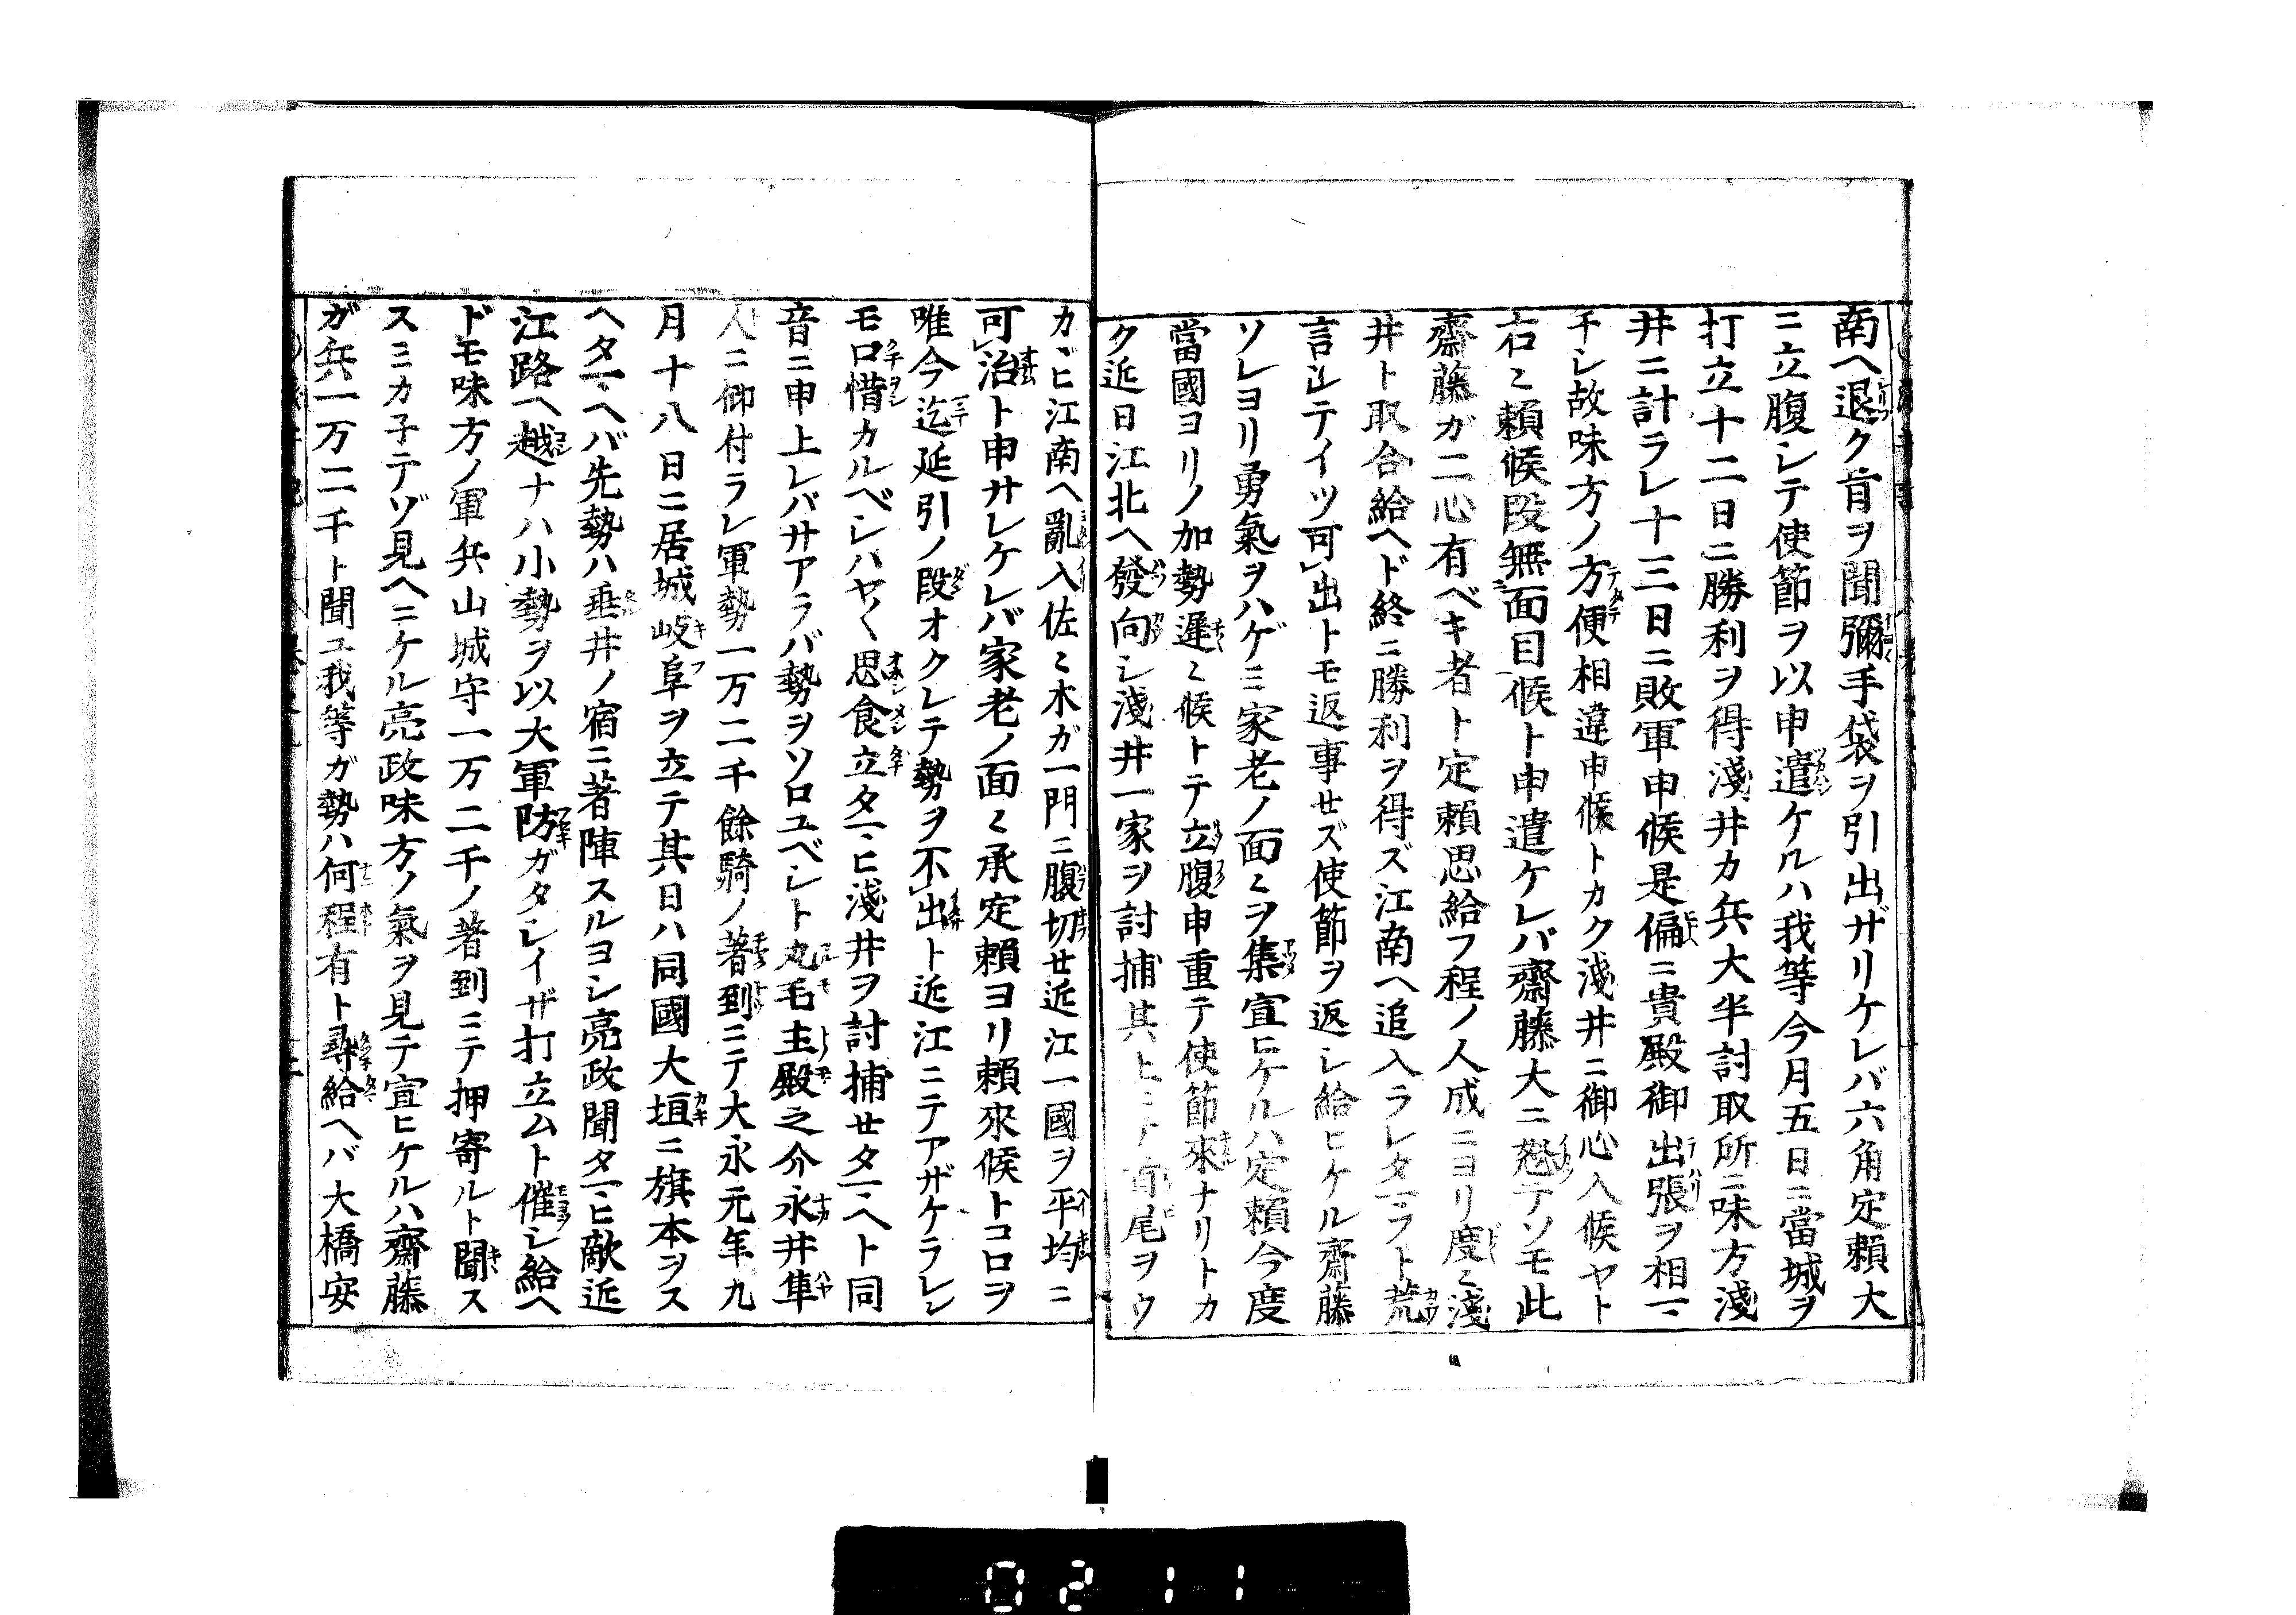 南ヘ退ク旨ヲ聞彌手袋ヲ引出ザリケレバ六角定賴大
ニ立腹シテ使節ヲ以申遣ケルハ我等今月五日ニ當城ヲ
打立十二日ニ勝利ヲ得淺井カ兵大半討取所ニ味方淺
井ニ計ラレ十三日ニ敗軍申候是偏ニ貴殿御出張ヲ相
チレ故味方ノ方便相違申候トカク淺井ニ御心入候ヤト
右〻賴候段無面目候ト申遣ケレバ齋藤大ニ怒テソモ此
齋藤ガ二心有ベキ者ト定賴思給フ程ノ人成ニヨリ度〻淺
井ト取合給ヘド終ニ勝利ヲ得ズ江南ヘ追入ラレタフト荒
言シテイツ可出トモ返事セズ使節ヲ返シ給ヒケル齋藤
ソレヨリ勇氣ヲハゲミ家老ノ面〻ヲ集宣ヒケルハ定賴今度
當國ヨリノ加勢遲〻候トテ立腹申重テ使節來ナリトカ
ク近日江北ヘ發向シ淺井一家ヲ討捕其上ニテ首尾ヲウ
カヾヒ江南ヘ亂入佐〻木ガ一門ニ腹切せ近江一國ヲ平均ニ
可治ト申サレケレバ家老ノ面〻承定賴ヨリ賴來候トコロヲ
唯今迄延引ノ段オクレテ勢ヲ不出ト近江ニテアザケラレン
モ口惜カルベシハヤ〱思食立タマヒ淺井ヲ討捕せタマヘト同
音ニ申上レバサアラバ勢ヲソロユベシト丸毛主殿之介永井隼
人ニ御付ラレ軍勢一万二千餘騎ノ著到ニテ大永元年九
月十八日ニ居城岐阜ヲ立テ其日ハ同國大垣ニ旗本ヲス
ヘタマヘバ先勢ハ垂井ノ宿ニ著陣スルヨシ亮政聞タマヒ敵近
江路ヘ越ナハ小勢ヲ以大軍防ガタシイザ打立ムト催シ給ヘ
ドモ味方ノ軍兵山城守一万二千ノ著到ニテ押寄ルト聞ス
スミカ子テゾ見ヘニケル亮政味方ノ氣ヲ見テ宣ヒケルハ齋藤
ガ兵一万二千ト聞ユ我等ガ勢ハ何程有ト尋給ヘバ大橋安
0211